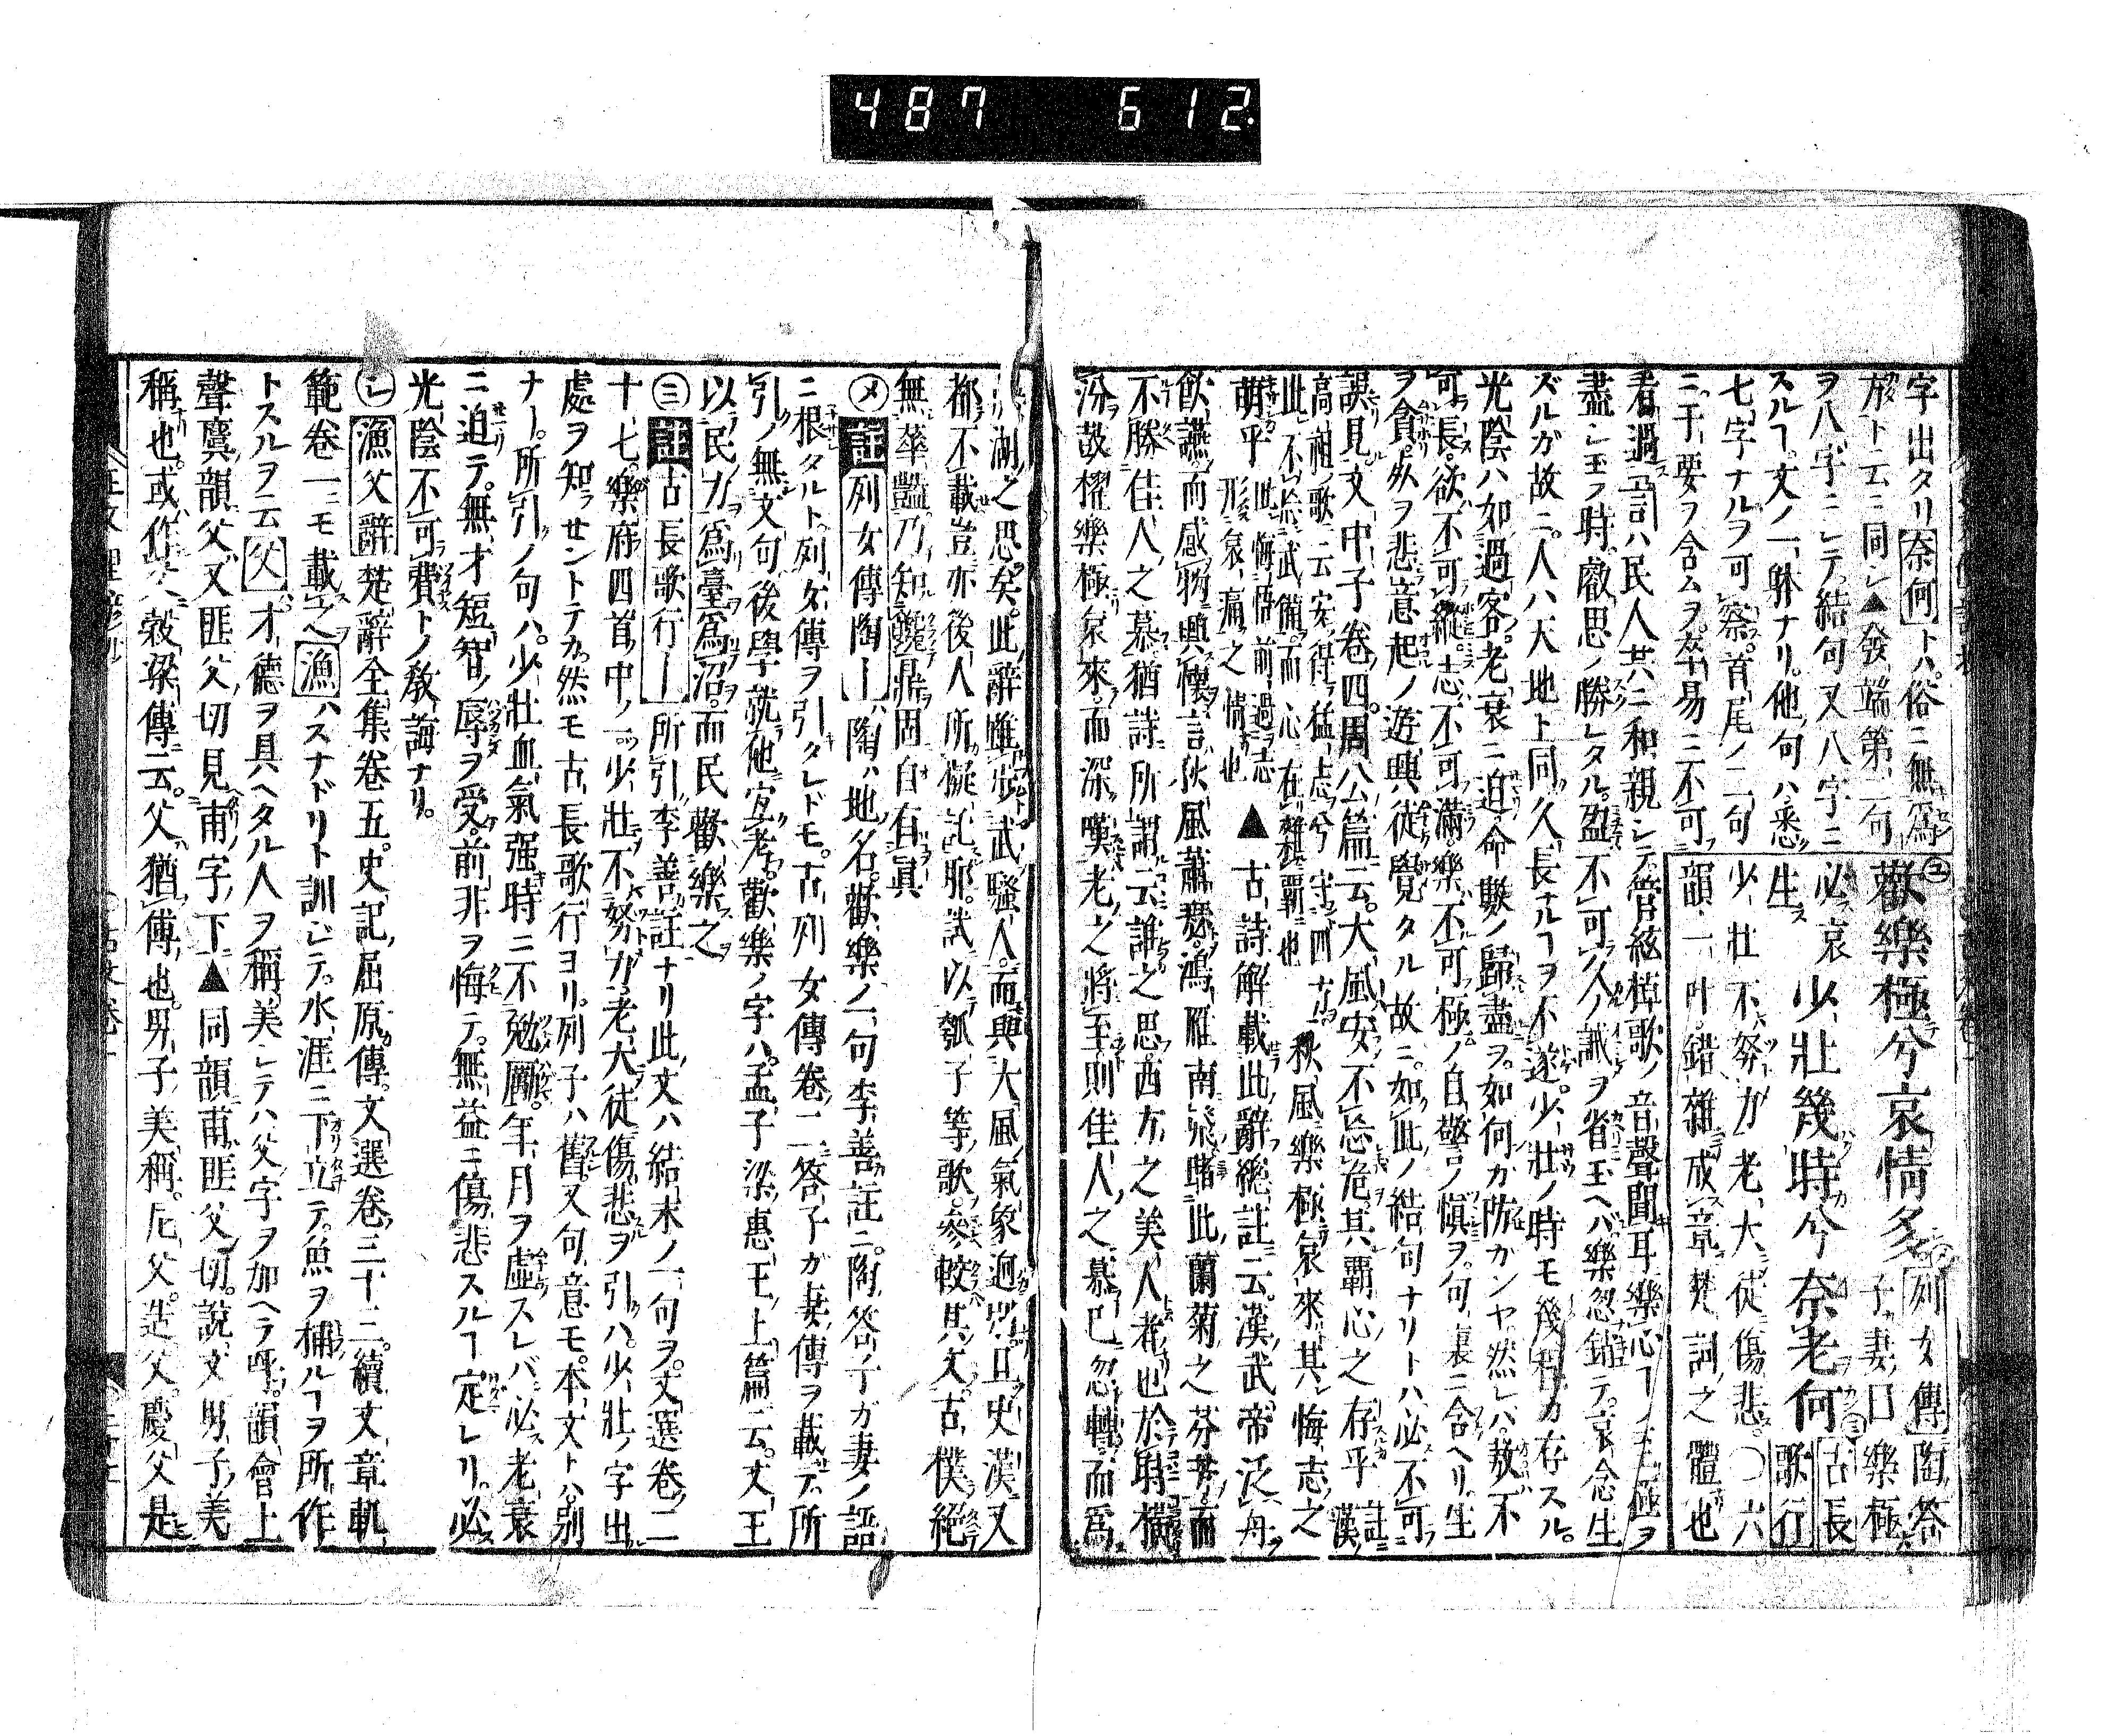 487 612
字出タリ奈何トハ俗ニ無爲
方ト云ニ同シ▲發端第一句
ヲ八字ニシテ結句又八字ニ
スルヿ文ノ一躰ナリ他ノ句ハ悉ク
七字ナルヲ可察首尾ノ二句
ニ于要ヲ含ムヲ卒易ニ不可
ユ歡樂極兮哀情多
列女傳陶答
子妻曰樂極
必哀
生
少壯幾時兮奈老何
ミ古長
歌行
少壯不努力老大徒傷悲○六
韻一叶錯雜成章楚詞之體也
看過ス司ハ民人共ニ和親シテ管絃棹歌ノ音聲聞耳樂心ヿノ至極ヲ
盡シ玉フ時叡思ノ勝レタル盈不可久ノ誡ヲ省玉ヘバ樂忽錯テ哀念生
ズルガ故ニ人ハ天地ト同久長ナルヿヲ不遂少壯ノ時モ幾程カ存スル
光陰ハ如過客老衰ニ迫命數ノ歸盡ヲ如何カ防カンヤ然レバ敖不
可長欲不可縱志不可滿樂不可極ノ自警ノ愼ヲ句裏ニ含ヘリ生
ヲ貪死ヲ悲意起ノ遊興從覺タル故ニ如此ノ結句ナリトハ必不可
誤見文中子卷四周公篇云大風安不忘危其霸心之存乎
註漢
高祖歌云安得猛士兮守四方
此不忘武備而心在雜霸也
秋風樂極哀來其悔志之
萌乎
此悔悟前過志
形哀痛之情也
▲古詩解載此辭總註云漢武帝泛舟
飮讌而感物興懷言秋風蕭瑟鴻雁南飛睹此蘭菊之芬芳而
不勝佳人之慕猶詩所謂云誰之思西方之美人者也於是橫
汾鼓櫂樂極哀來而深嘆老之將至則佳人之慕已忽轉而爲
湖之思矣此辭雖步武騷人而與大風氣象迥別且史漢又
都不載豈亦後人所擬託耶試以瓠子等歌參較其文古樸絶
無華豔乃知贗鼎固自有眞
メ註列女傳陶ー陶ハ地名歡樂ノ一句李善註ニ陶答子ガ妻ノ語
ニ根タルト列女傳ヲ引タレドモ古列女傳卷二答子ガ妻傳ヲ載テ所
引ノ無文句後學就他宜考歡樂ノ字ハ孟子梁惠王上篇云文王
以民力爲臺爲沼而民歡樂之
ミ註古長歌行ー所引李善註ナリ此文ハ結末ノ一句ヲ文選卷二
十七樂府四首中ノ一少壯不努力老大徒傷悲ヲ引ハ少壯ノ字出
處ヲ知ラセントテカ然モ古長歌行ヨリ列子ハ舊又句意モ本文トハ別
ナー所引ノ句ハ少壯血氣强時ニ不勉勵年月ヲ虛スレバ必老衰
ニ迫テ無才短智ノ辱ヲ受前非ヲ悔テ無益ニ傷悲スルヿ定レリ必
光陰不可費トノ敎誨ナリ
シ漁父辭楚辭全集卷五史記屈原傳文選卷三十三續文章軌
範卷一ニモ載之漁ハスナドリト訓ジテ水涯ニ下立テ魚ヲ捕ルヿヲ所作
トスルヲ云父才德ヲ具ヘタル人ヲ稱美シテハ父字ヲ加ヘテ呼韻會上
聲麌韻父又匪父切見甫字下▲同韻甫匪父切說文男子美
稱也或作父穀梁傳云父猶傳也男子美稱尼父造父慶父是